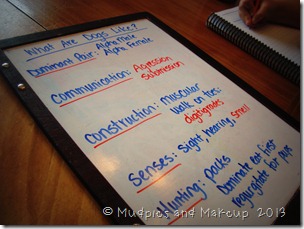 What Are Dogs Like?
Dominant Pair: Alpha Male
Alpha Female
Communication: Agression
Submission
Construction: Muscular
walk on toes:
digitigrades
Senses: Sight, hearing, smell
Hunting: Packs
Dominate eat first
regurgitate for pups
© Mudpies and Makeup 2013